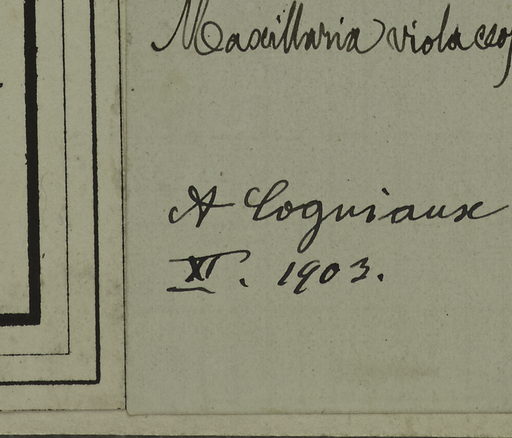 Maxillaria violaceop
A Cogniaux
XI. 1903.